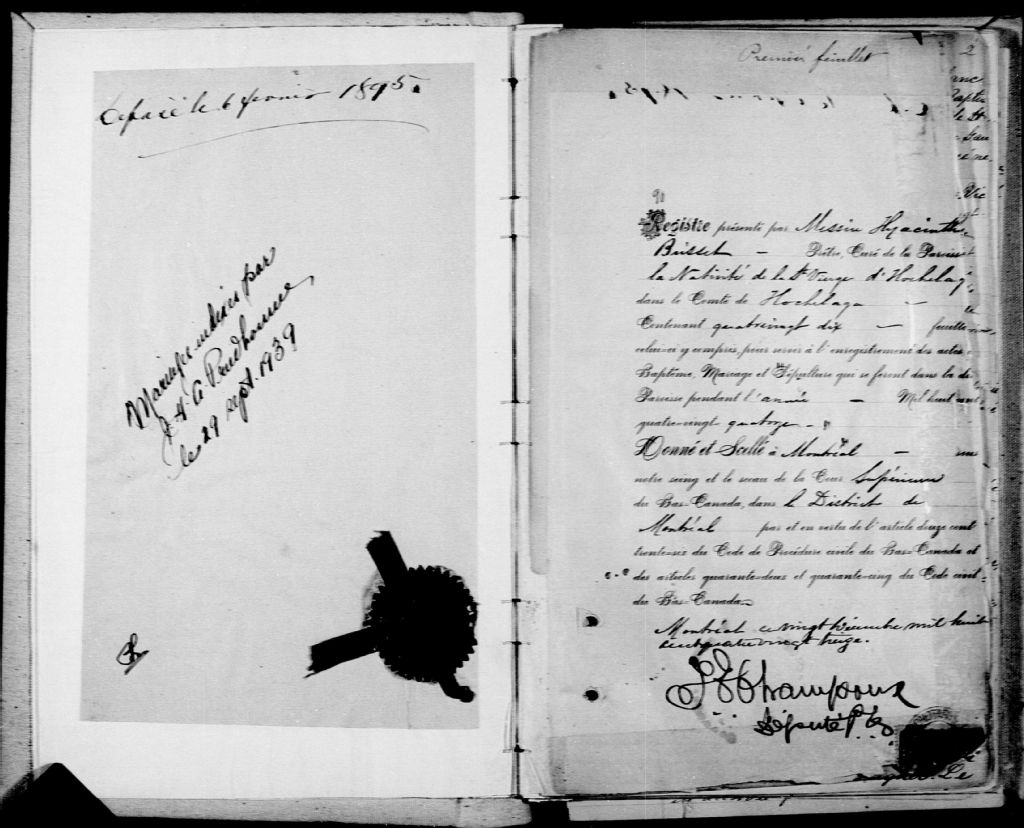 Déposé le 6 février 1895.
Mariages indexés par
J. A. Prudhomme,
le 29 sept. 1939
Premier feuillet
2
90
Registre présenté par Messire Hyacinthe
Brisset — Prêtre, Curé de la Paroisse
la Nativité de la Ste Vierge d'Hochelag
dans le Comté de Hochelaga —
Contenant quatrevingt dix — feuille
celui-ci y compris, pour servir à l'enregistrement des actes
Baptême, Mariage et Sépulture qui se feront dans la di
Paroisse pendant l'année — Mil huit cent
quatre-vingt quatorze —
Donné et Scellé à Montréal — sous
notre seing et le sceau de la Cour Supérieure
du Bas-Canada, dans le District de
Montréal par et en vertu de l'article douze cent
trente-six du Code de Procédure civile du Bas-Canada et
des articles quarante-deux et quarante-cinq du Code civil
du Bas-Canada.
Montréal ce vingt Décembre mil huit
cent quatre vingt treize.
Champoux
Député P.